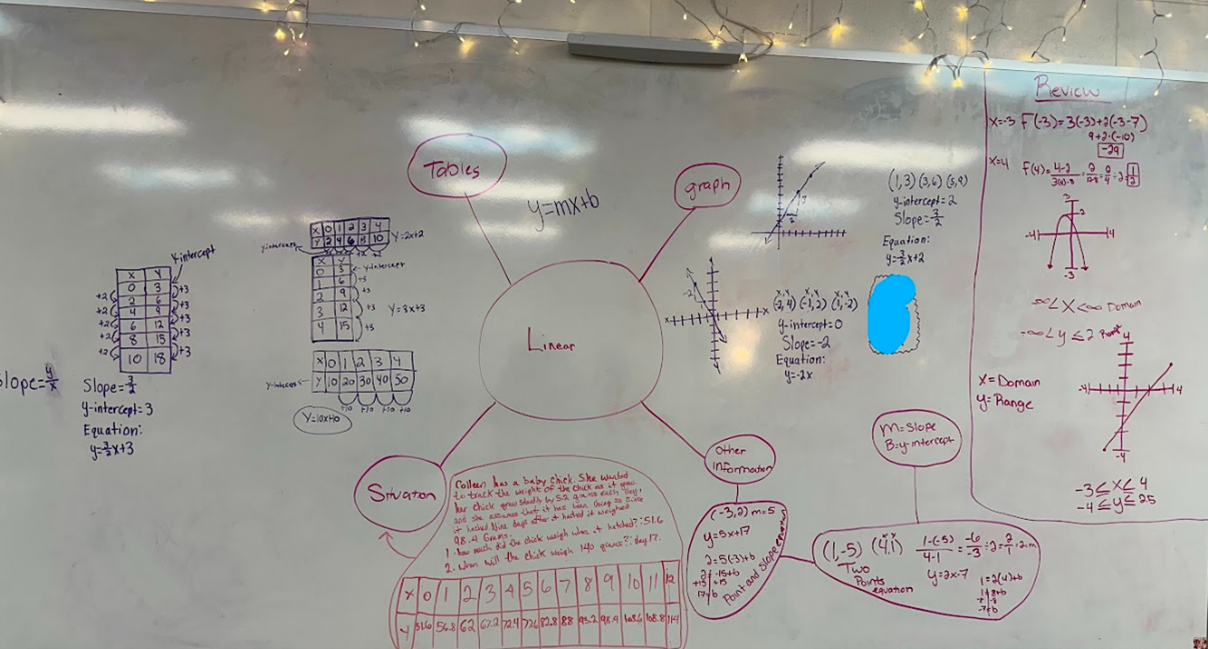 Tables
y=mx+b
graph
Linear
Situation
Other
Information
M=Slope
B=y-intercept
Slope=y/x
X Y
0 3
2 6
4 9
6 12
8 15
10 18
y-intercept
+2 +3
+2 +3
+2 +3
+2 +3
+2 +3
Slope=3/2
y-intercept=3
Equation:
y=3/2x+3
X 0 1 2 3 4
Y 2 4 6 8 10
Y=2x+2
y-intercept
X Y
0 3
1 6
2 9
3 12
4 15
y-intercept
+3
+3
+3
+3
Y=3x+3
X 0 1 2 3 4
Y 10 20 30 40 50
+10 +10 +10 +10
Y=10x+10
(1,3) (3,6) (5,9)
y-intercept=2
Slope=3/2
Equation:
y=3/2x+2
(-2,4) (-1,2) (1,-2)
y-intercept=0
Slope=-2
Equation:
y=-2x
Colleen has a baby chick. She wanted
to track the weight of the chick as it grew.
her chick grew steadily by 5.2 grams each day,
and she assumes that it has been doing so since
it hatched. Nine days after it hatched it weighed
98.4 Grams.
1. how much did the chick weigh when it hatched?:51.6
2. when will the chick weigh 140 grams?: day 17.
X 0 1 2 3 4 5 6 7 8 9 10 11 12
Y 51.6 56.8 62 67.2 72.4 77.6 82.8 88 93.2 98.4 103.6 108.8 114
(-3,2) m=5
y=5x+17
2=5(-3)+b
2=-15+b
+15 +15
17=b
Point and slope equation
(1,-5) (4,1)
Two
Points
equation
y=2x-7
1=2(4)+b
1=8+b
-7=b
Review
X=-3 F(-3)=3(-3)+2(-3-7)
9+2·(-10)
-29
X=4
-4 4
3
2
-3
-∞<X<∞ Domain
-∞<y≤2 Range
X=Domain
y=Range
4
-4 4
-4
-3≤X≤4
-4≤y≤2.5